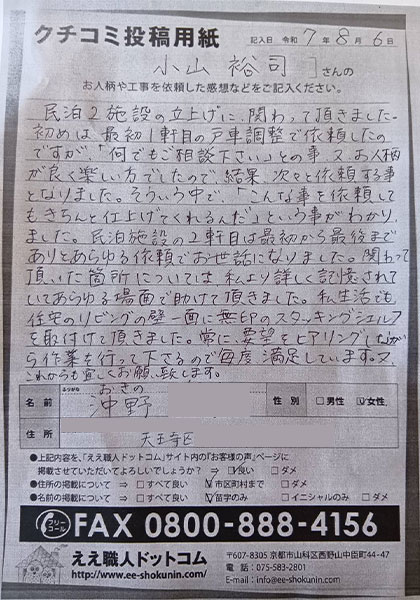 クチコミ投稿用紙 記入日 令和 7 年 8 月 6 日
小山 裕司 さんの
お人柄や工事を依頼した感想などをご記入ください。
民泊2施設の立上げに、関わって頂きました。
初めは、最初1軒目の戸車調整で依頼したの
ですが、「何でもご相談下さい」との事、又お人柄
が良く楽しい方でしたので、結果、次々と依頼する事
となりました。そういう中で、「こんな事を依頼して
もきちんと仕上げてくれるんだ」という事がわかり
ました。民泊施設の2軒目は最初から最後まで
ありとあらゆる依頼でお世話になりました。関わって
頂いた箇所については、私より詳しく記憶されて
いてあらゆる場面で助けて頂きました。私生活でも
住宅のリビングの壁一面に無印のスタッキングシェルフ
を取付けて頂きました。常に、要望をヒアリングしなが
ら作業を行って下さるので毎度満足しています。又、
これからも宜しくお願い致します。
ふりがな おきの
名前 沖野 性別 □男性 ☑女性
住所 天王寺区
●上記内容を、「ええ職人ドットコム」サイト内の『お客様の声』ページに
掲載させていただいてよろしいでしょうか? ⇒ ☑良い □ダメ
●住所の掲載について ⇒ □すべて良い ☑市区町村まで □ダメ
●名前の掲載について ⇒ □すべて良い ☑苗字のみ □イニシャルのみ □ダメ
フリーコール FAX 0800-888-4156
ええ職人ドットコム
http://www.ee-shokunin.com/
〒607-8305 京都市山科区西野山中臣町44-47
電話:075-583-2801
E-mail:info@ee-shokunin.com